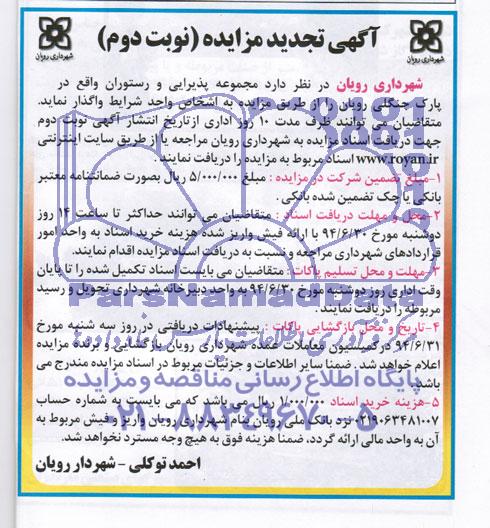 آگهی تجدید مزایده (نوبت دوم)
شهرداری رویان
شهرداری رویان
شهرداری رویان در نظر دارد مجموعه پذیرایی و رستوران واقع در
پارک جنگلی رویان را از طریق مزایده به اشخاص واجد شرایط واگذار نماید.
متقاضیان می توانند ظرف مدت ۱۰ روز اداری از تاریخ انتشار آگهی نوبت دوم
جهت دریافت اسناد مزایده به شهرداری رویان مراجعه یا از طریق سایت اینترنتی
www.royan.ir اسناد مربوط به مزایده را دریافت نمایند.
۱-مبلغ تضمین شرکت در مزایده : مبلغ ۵/۰۰۰/۰۰۰ ریال بصورت ضمانتنامه معتبر
بانکی یا چک تضمین شده بانکی.
۲-محل و مهلت دریافت اسناد : متقاضیان می توانند حداکثر تا ساعت ۱۴ روز
دوشنبه مورخ ۹۴/۶/۳۰ با ارائه فیش واریز شده هزینه خرید اسناد به واحد امور
قراردادهای شهرداری مراجعه و نسبت به دریافت اسناد مزایده اقدام نمایند.
۳-مهلت و محل تسلیم پاکات : متقاضیان می بایست اسناد تکمیل شده را تا پایان
وقت اداری روز دوشنبه مورخ ۹۴/۶/۳۰ به واحد دبیرخانه شهرداری تحویل و رسید
مربوطه را دریافت نمایند.
۴-تاریخ و محل بازگشایی پاکات : پیشنهادات دریافتی در روز سه شنبه مورخ
۹۴/۶/۳۱ در کمیسیون معاملات عمده شهرداری رویان بازگشایی و برنده مزایده
اعلام خواهد شد. ضمنا سایر اطلاعات و جزئیات مربوط در اسناد مزایده مندرج می
باشد.
۵-هزینه خرید اسناد ۱/۰۰۰/۰۰۰ ریال می باشد که می بایست به شماره حساب
۰۲۱۹۰۶۳۴۸۱۰۰۷ نزد بانک ملی رویان بنام شهرداری رویان واریز و فیش مربوط به
آن به واحد مالی ارائه گردد، ضمنا هزینه فوق به هیچ وجه مسترد نخواهد شد.
احمد توکلی - شهردار رویان
ParsNamadData
پایگاه اطلاع رسانی مناقصه و مزایده
۰۲۱-۸۸۳۴۹۶۷۰-۵